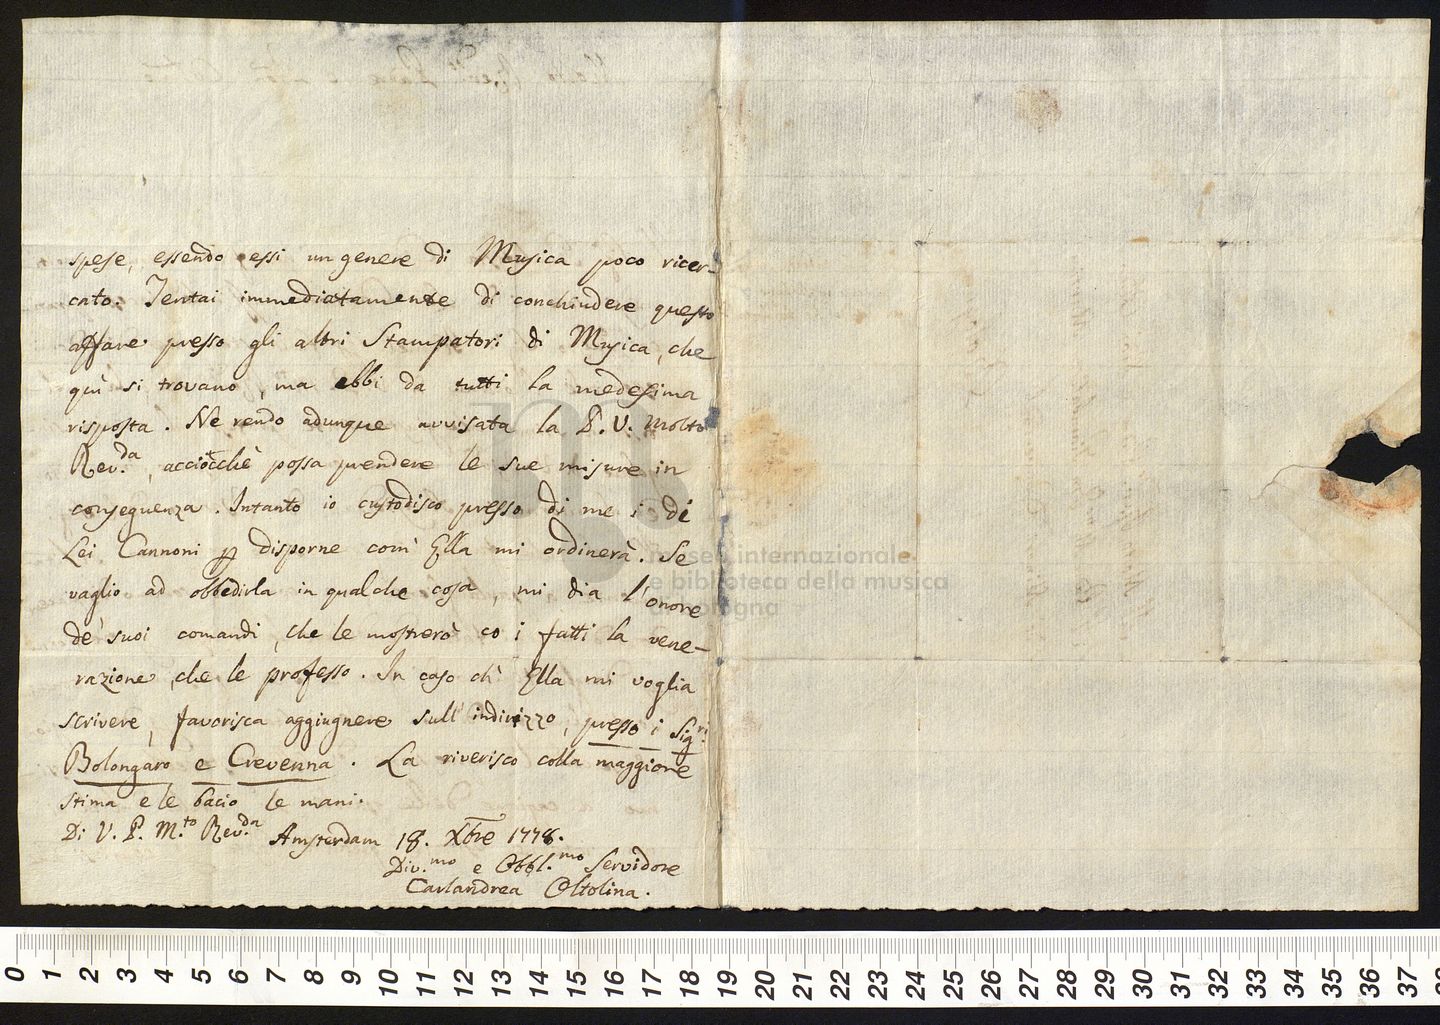 spese, essendo essi un genere di Musica poco ricer-
cato. Tentai immediatamente di conchiudere questo
affare presso gli altri Stampatori di Musica, che
quì si trovano, ma ebbi da tutti la medesima
risposta. Ne rendo adunque avvisata la P. V. Molto
Rev.da, acciocchè possa prendere le sue misure in
conseguenza. Intanto io custodisco presso di me i di
Lei Cannoni per disporne com' Ella mi ordinerà. Se
vaglio ad obbedirla in qualche cosa, mi dia l'onore
de' suoi comandi, che le mostrerò co i fatti la vene-
razione, che le professo. In caso ch' Ella mi voglia
scrivere, favorisca aggiugnere sull' indirizzo, presso i Sig.ri
Bolongaro e Crevenna. La riverisco colla maggiore
stima e le bacio le mani.
Di V. P. M.to Rev.da Amsterdam 18. Xbre 1778.
Div.mo e Obbl.mo Servidore
Carlandrea Oltolina.
museo internazionale
e biblioteca della musica
di bologna
0 1 2 3 4 5 6 7 8 9 10 11 12 13 14 15 16 17 18 19 20 21 22 23 24 25 26 27 28 29 30 31 32 33 34 35 36 37 38